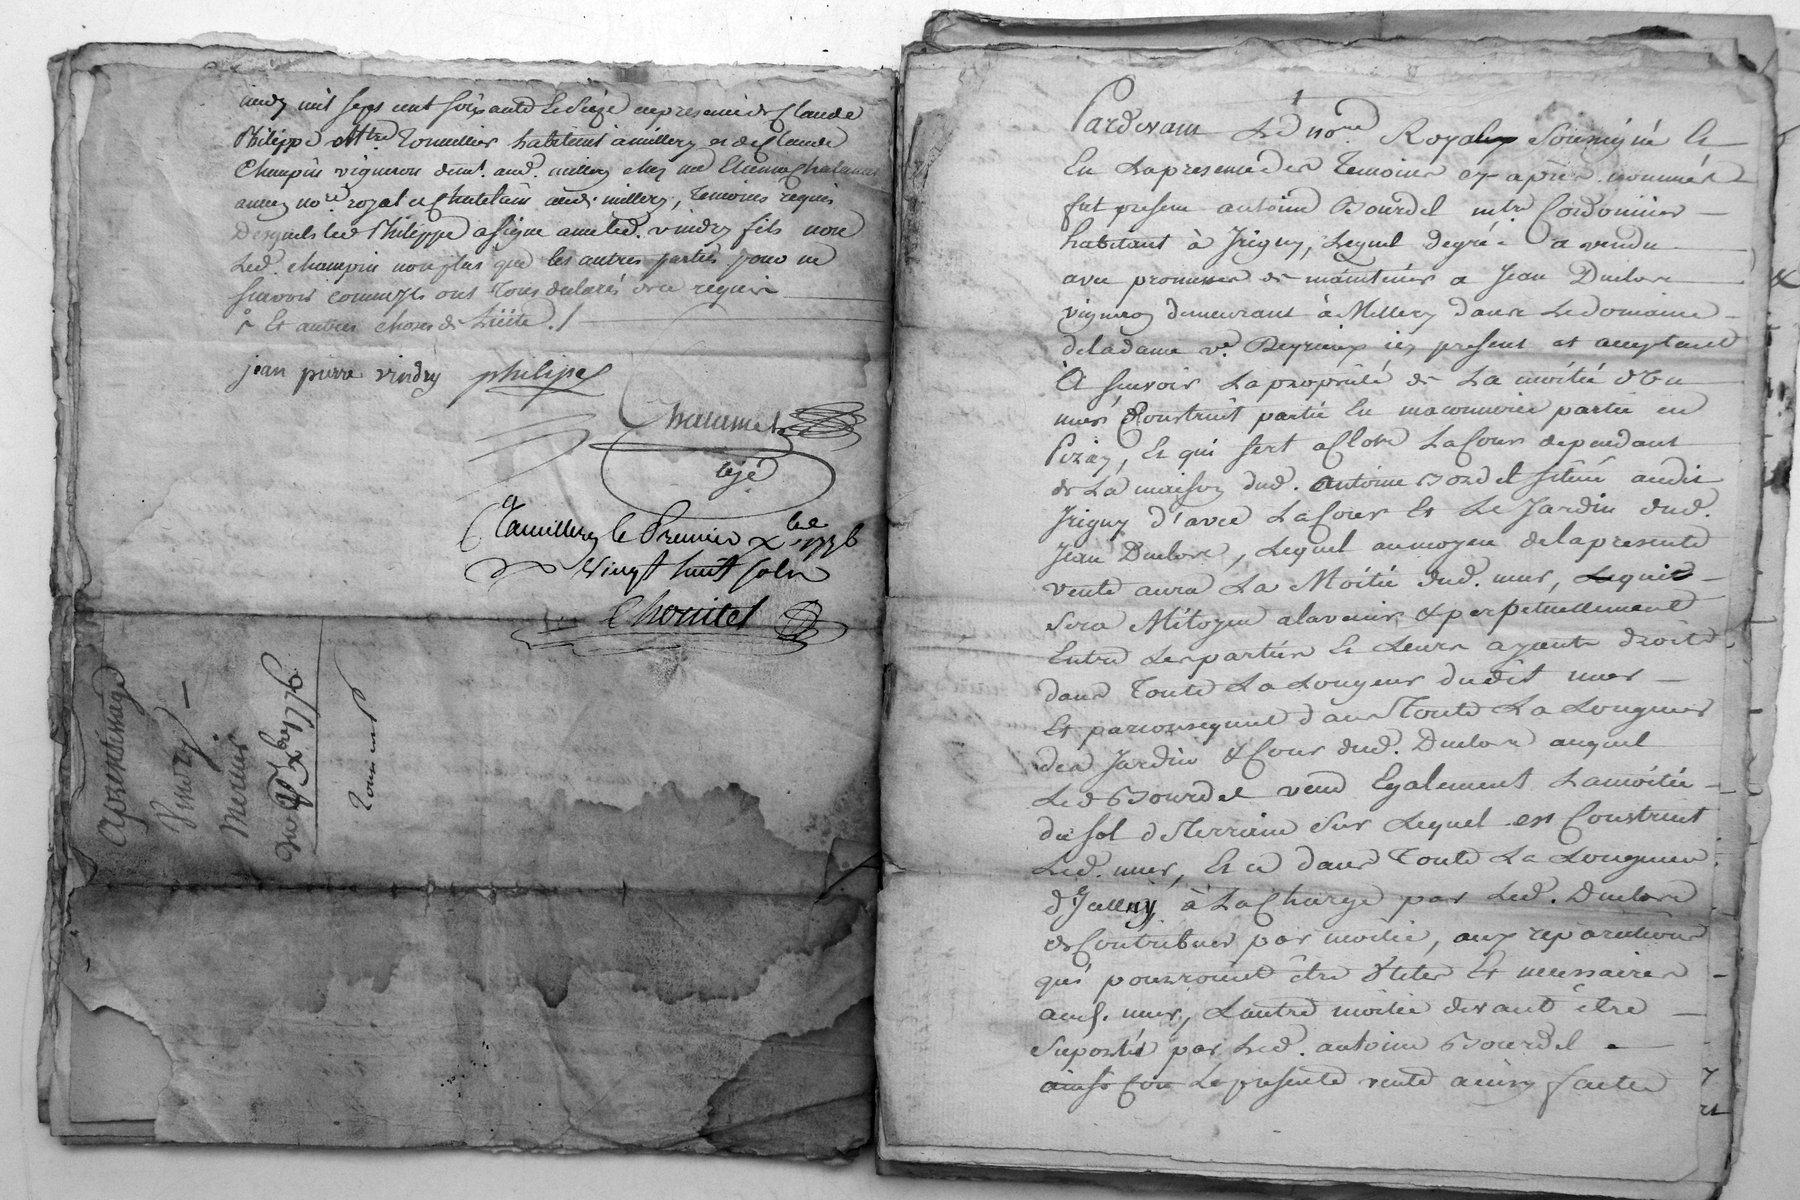 mil sept cent soixante et seize en presence de Claude
Philippe Mtre Tonnellier habitant a millery et de Claude
Champin vigneron demt. aud. millery chez me Etienne Chalamet
ancien nore royal et Chatelain dud. millery, Temoins requis
Desquels led Philippe a signé avec led. vindry fils non
Led. champin non plus que les autres parties pour ne
scavoir comme ils ont Tous declarés de ce requis
Et autres choses de suitte./
jean pierre vindry philipe
Chalamet
Cé a millery le Premier xbre 1776
vingt huit sols
Chomitel
Aprentissage
Vindry
Mercier
Du 1er Xbre 1776
Pardevant Le nore Royal Soussigné Et
En La presence des Temoins cy après nommés
fut present antoine Bourdel mtre Cordonnier
habitant à Irigny, Lequel de gré a vendu
avec promesse de maintenir a Jean Duclore
vigneron demeurant à Millery dans Le domaine
de la dame ve. Peyrieux icy present et acceptant
A scavoir La propriété de La moitié d'un
mur Construit partie En maconnerie partie en
Pizay, Et qui sert a Clore La Cour dependant
de La maison dud. Antoine Bourdel située audit
Irigny d'avec La Cour Et Le Jardin dud.
Jean Duclore, Lequel au moyen de la presente
vente aura La Moitié dud. mur, Lequel
sera Mitoyen a lavenir & perpetuellement
Entre Les parties Et Leurs ayants droits
dans Toute La Longeur dudit mur
Et par consequent dans Toute La Longueur
des Jardin & Cour dud. Duclore auquel
Led Bourdel vend Egalement La moitié
du sol & Terrain sur Lequel est Construit
Led. mur, Et ce dans Toute La Longueur
d'Jcelluy, à La Charge par Led. Duclore
de Contribuer par moitié, aux reparations
qui pourroient être utiles Et necessaires
aud. mur, L'autre moitié devant être
suportée par Led. antoine Bourdel
La presente vente ainsy faite